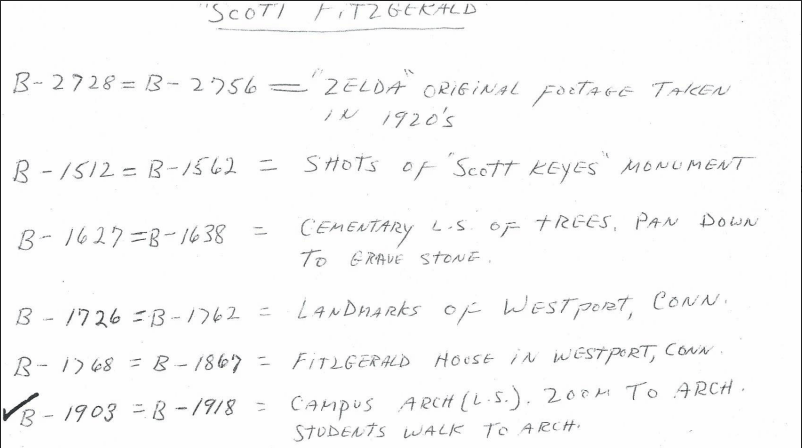 "SCOTT FITZGERALD"
B-2728 = B-2756 = "ZELDA" ORIGINAL FOOTAGE TAKEN
IN 1920's
B-1512 = B-1562 = SHOTS OF "SCOTT KEYES" MONUMENT
B-1627 = B-1638 = CEMENTARY L.S. OF TREES. PAN DOWN
TO GRAVE STONE.
B-1726 = B-1762 = LANDMARKS OF WESTPORT, CONN.
B-1768 = B-1867 = FITZGERALD HOUSE IN WESTPORT, CONN.
B-1903 = B-1918 = CAMPUS ARCH (L.S.). ZOOM TO ARCH.
STUDENTS WALK TO ARCH.